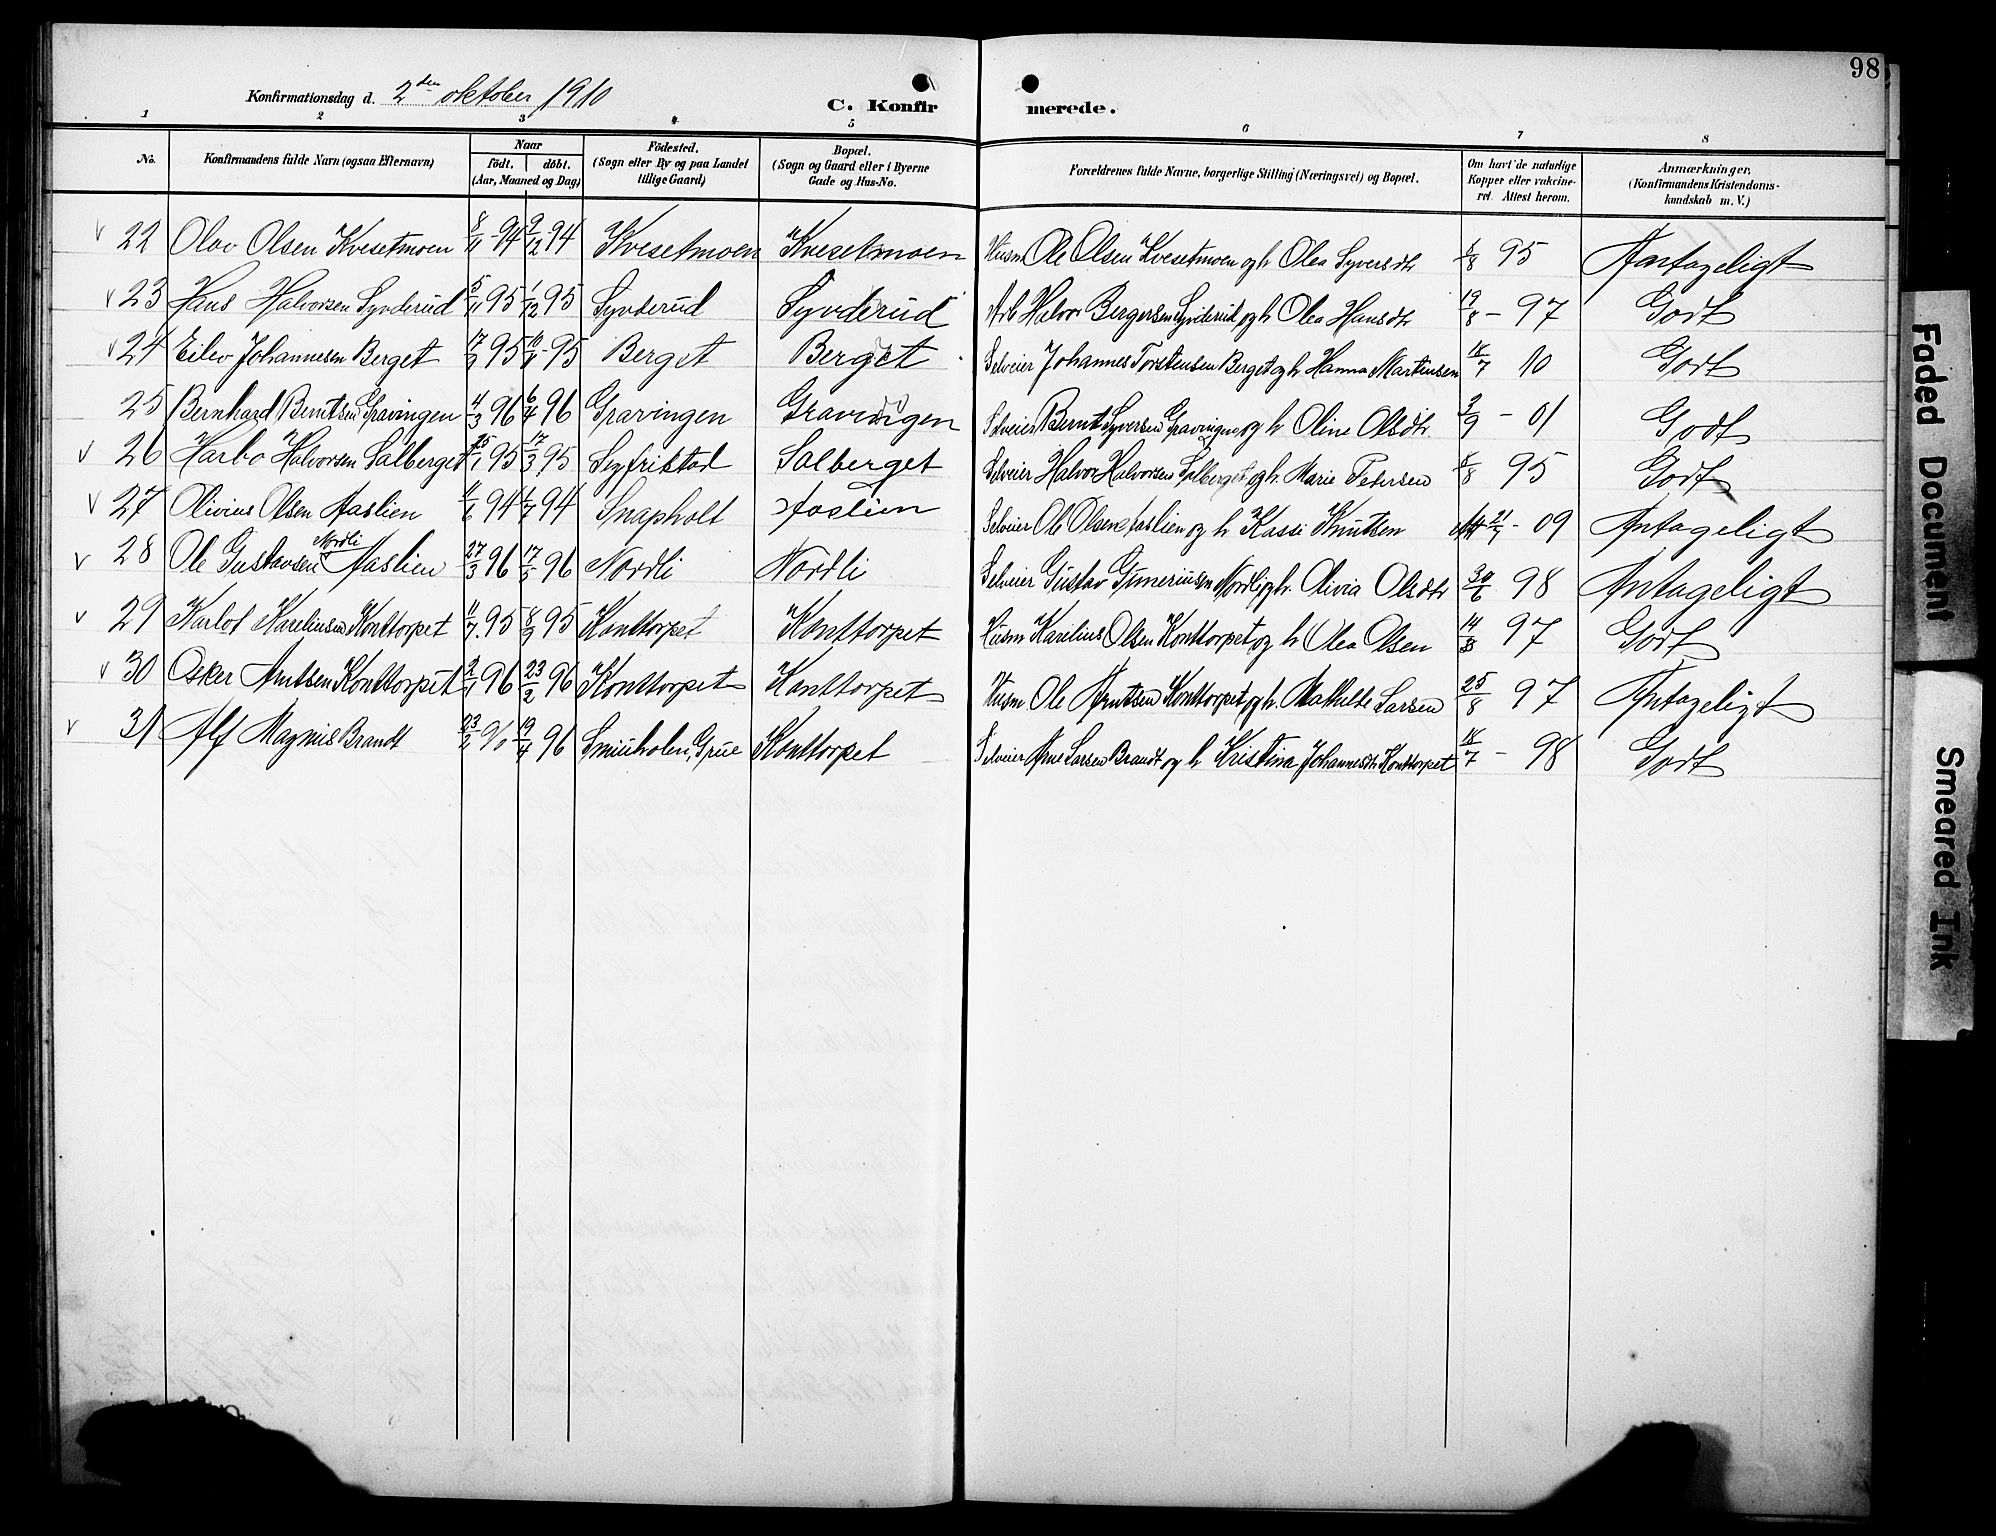 98
Konfirmationsdag d. 2den oktober 1910
C. Konfirmerede.
1 2 3 4 5 6 7 8
No. Konfirmandens fulde Navn (ogsaa Efternavn) Naar födt. döbt. (Aar, Maaned og Dag) Födested. (Sogn eller By og paa Landet tillige Gaard) Bopæl. (Sogn og Gaard eller i Byerne Gade og Hus-No. Forældrenes fulde Navne, borgerlige Stilling (Næringsvei) og Bopæl. Om havt de naturlige Kopper eller vakcineret. Attest herom. Anmærkninger. (Konfirmandens Kristendomskundskab m. V.)
22 Olav Olsen Kvesetmoen 8/11-94 9/12-94 Kvesetmoen Kvesetmoen Husm Ole Olsen Kvesetmoen og h Olea Syversdtr 8/8 95 Antageligt
23 Hans Halvorsen Synderud 5/11 95 1/12 95 Synderud Synderud Arb Halvor Bergersen Synderud og h Olea Hansdtr 19/8 - 97 Godt
24 Eilev Johannesen Berget 95 95 Berget Berget Selveier Johannes Torstensen Berget og h Hanna Martinsen 18/7 10 Godt
25 Bernhard Berntsen Gravingen 4/3 96 6/4 96 Gravingen Gravingen Selveier Bernt Syversen Gravingen og h Oline Olsdtr. 3/9 - 01 Godt
26 Harbo Halvorsen Salberget 25/1 95 17/3 95 Syfristad Salberget Selveier Halvor Halvorsen Salberget og h. Marie Petersen 8/8 95 Godt
27 Olivius Olsen Aaslien 94 94 Snapholt Aaslien Selveier Ole Olsen Aaslien og h Kassi Knutsen - 09 Antageligt
28 Ole Gustavsen Nordli Aaslien 27/3 96 17/5 96 Nordli Nordli Selveier Gustav Guneriusen Nordli og h. Olivia Olsdtr 30/6 98 Antageligt
29 Karlot Kareliusen Konttorpet 11/7 95 8/9 95 Konttorpet Konttorpet Husm Karelius Olsen Konttorpet og h Olea Olsen 14/8 97 Godt
30 Osker Arntsen Konttorpet 2/1 96 23/2 96 Konttorpet Konttorpet Husm Ole Arntsen Konttorpet og h. Mathilde Larsen 25/8 97 Antageligt
31 Alf Magnus Brandt 23/2 96 19/4 96 Smiuholen, Grue Konttorpet Selveier Arne Larsen Brandt og h Kristina Johannesdtr Konttorpet 18/7 - 98 Godt
Faded Document
Smeared Ink